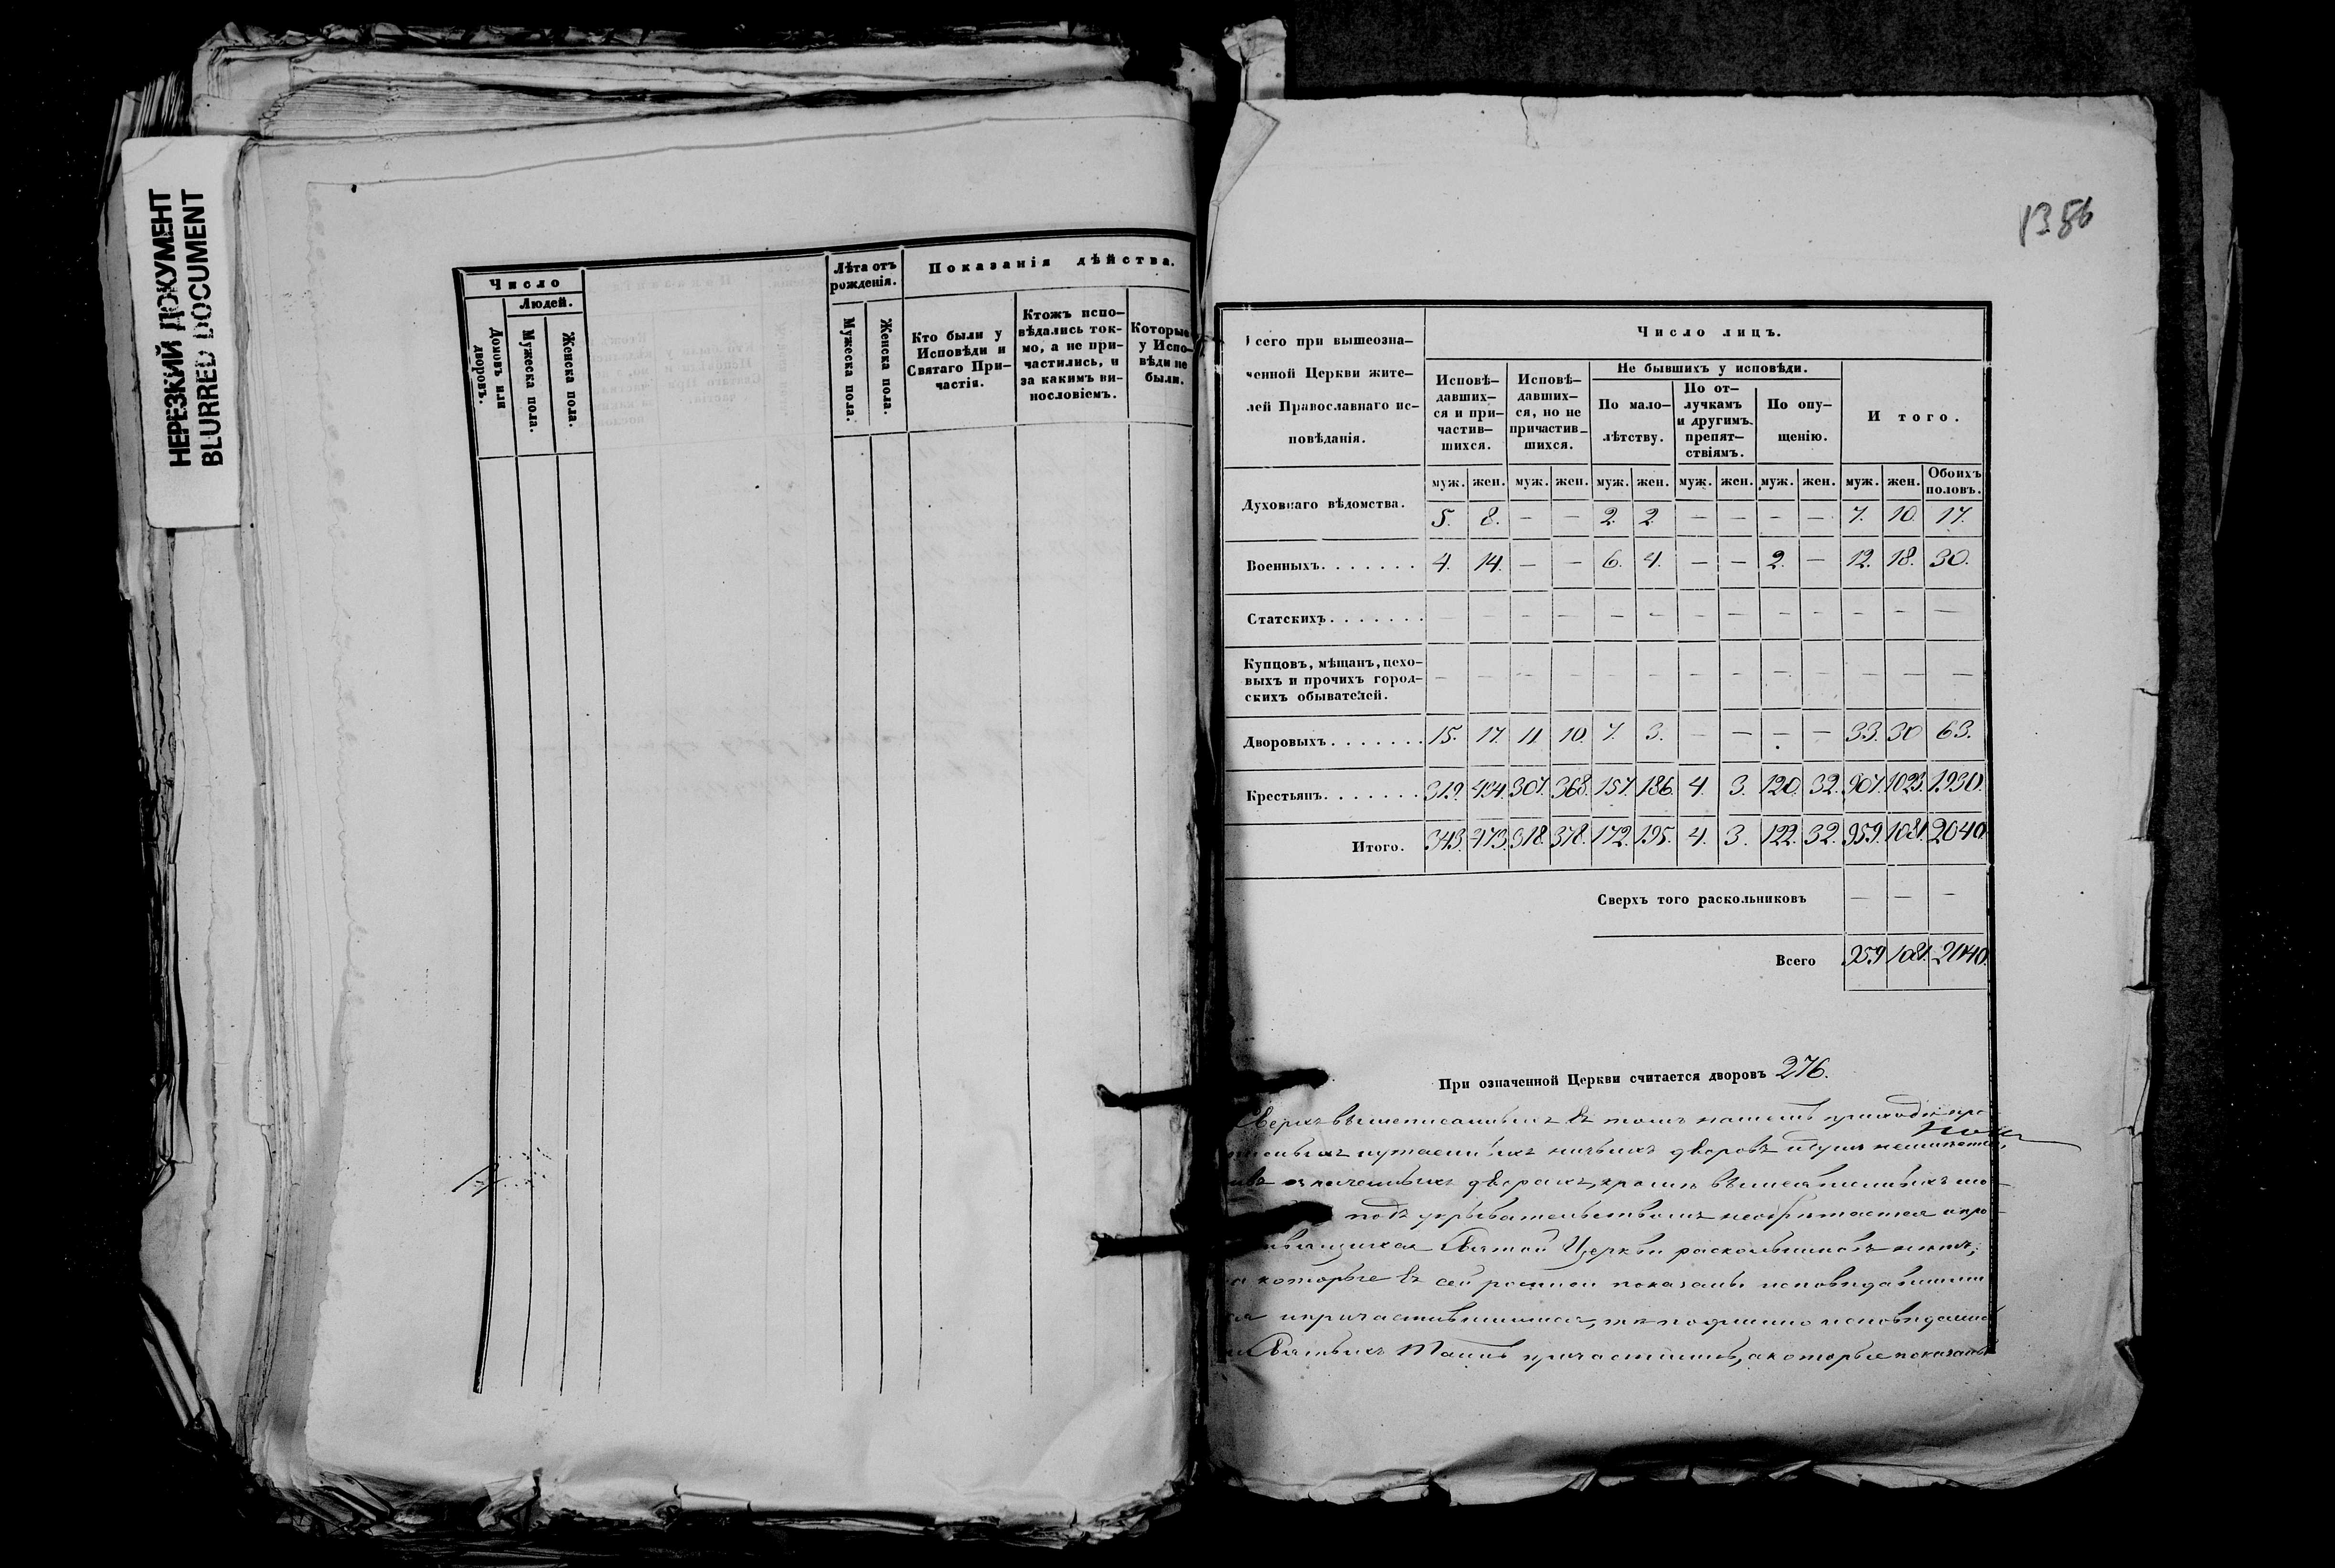 НЕРЕЗКИЙ ДОКУМЕНТ
BLURRED DOCUMENT
Число
Людей.
Домовъ или дворовъ.
Мужеска пола.
Женска пола.
Лѣта отъ рожденія.
Мужеска пола.
Женска пола.
Показанія дѣйства.
Кто были у
Исповѣди и
Святаго При-
частія.
Ктожъ испо-
вѣдались ток-
мо, а не при-
частились, и
за какимъ ви-
нословіемъ.
Которые
у Испо-
вѣди не
были.
1386
сего при вышеозна-
ченной Церкви жите-
лей Православнаго ис-
повѣданія.
Число лицъ.
Исповѣ-
давших-
ся и при-
частив-
шихся.
Исповѣ-
давших-
ся, но не
причастив-
шихся.
Не бывшихъ у исповѣди.
По мало-
лѣтству.
По от-
лучкамъ
и другимъ
препят-
ствіямъ.
По опу-
щенію.
Итого.
муж. жен. муж. жен. муж. жен. муж. жен. муж. жен. муж. жен. Обоихъ половъ.
Духовнаго вѣдомства. 5. 8. — — 2. 2 — — — — 7. 10. 17.
Военныхъ. . . . . . . 4. 14. — — 6. 4. — — 2. — 12. 18. 30.
Статскихъ. . . . . . . — — — — — — — — — — — — —
Купцовъ, мѣщанъ, цехо-
выхъ и прочихъ город- — — — — — — — — — — — — —
скихъ обывателей.
Дворовыхъ. . . . . . . 15. 17. 11. 10. 7. 3. — — — — 33. 30 63.
Крестьянъ. . . . . . . 319. 434. 307. 368. 157. 186. 4. 3. 120. 32. 907. 1023. 1930.
Итого. 343. 473. 318. 378. 172. 195. 4. 3. 122. 32. 959. 1081. 2040
Сверхъ того раскольниковъ — — —
Всего 959 1081. 2040.
При означенной Церкви считается дворовъ 276.
Сверхъ вышеписанныхъ въ томъ нашемъ приходѣ про-
утаенныхъ дворовъ
означенныхъ дворахъ, кромѣ
подъ укрывательствомъ
Святой Церкви раскольниковъ нѣтъ;
а которые въ сей росписи показаны исповѣдавшими
ся и причастившимися, тѣ исповѣдались
и Святыхъ Таинъ причастились, а которые показаны